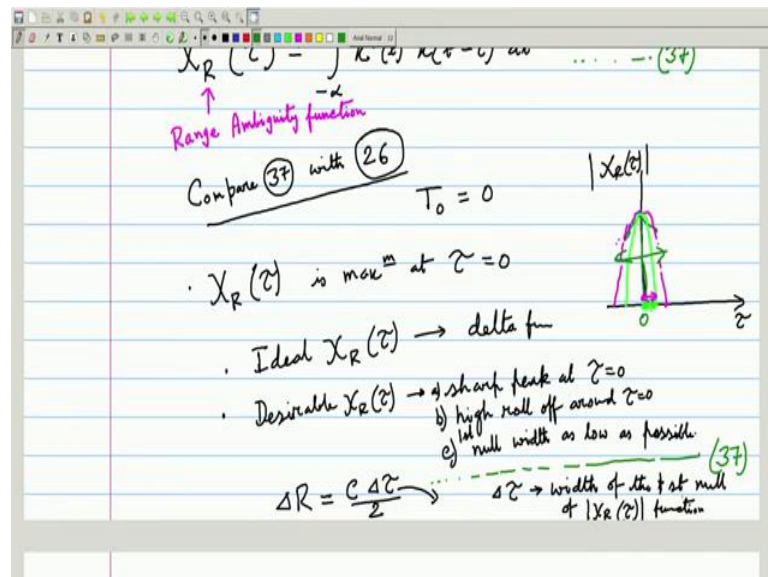 X_R (τ) = ∫_{-∝} x*(t) x(t-τ) dt ..... (37)
Range Ambiguity function
Compare (37) with (26)
T_0 = 0
|X_R(τ)|
0 τ
· X_R (τ) is max^m at τ = 0
· Ideal X_R (τ) → delta fun
· Desirable X_R(τ) → a) sharp peak at τ=0
b) high roll off around τ=0
c) 1st null width as low as possible
(37)
ΔR = c Δτ / 2
Δτ → width of the 1st null
of |X_R(τ)| function